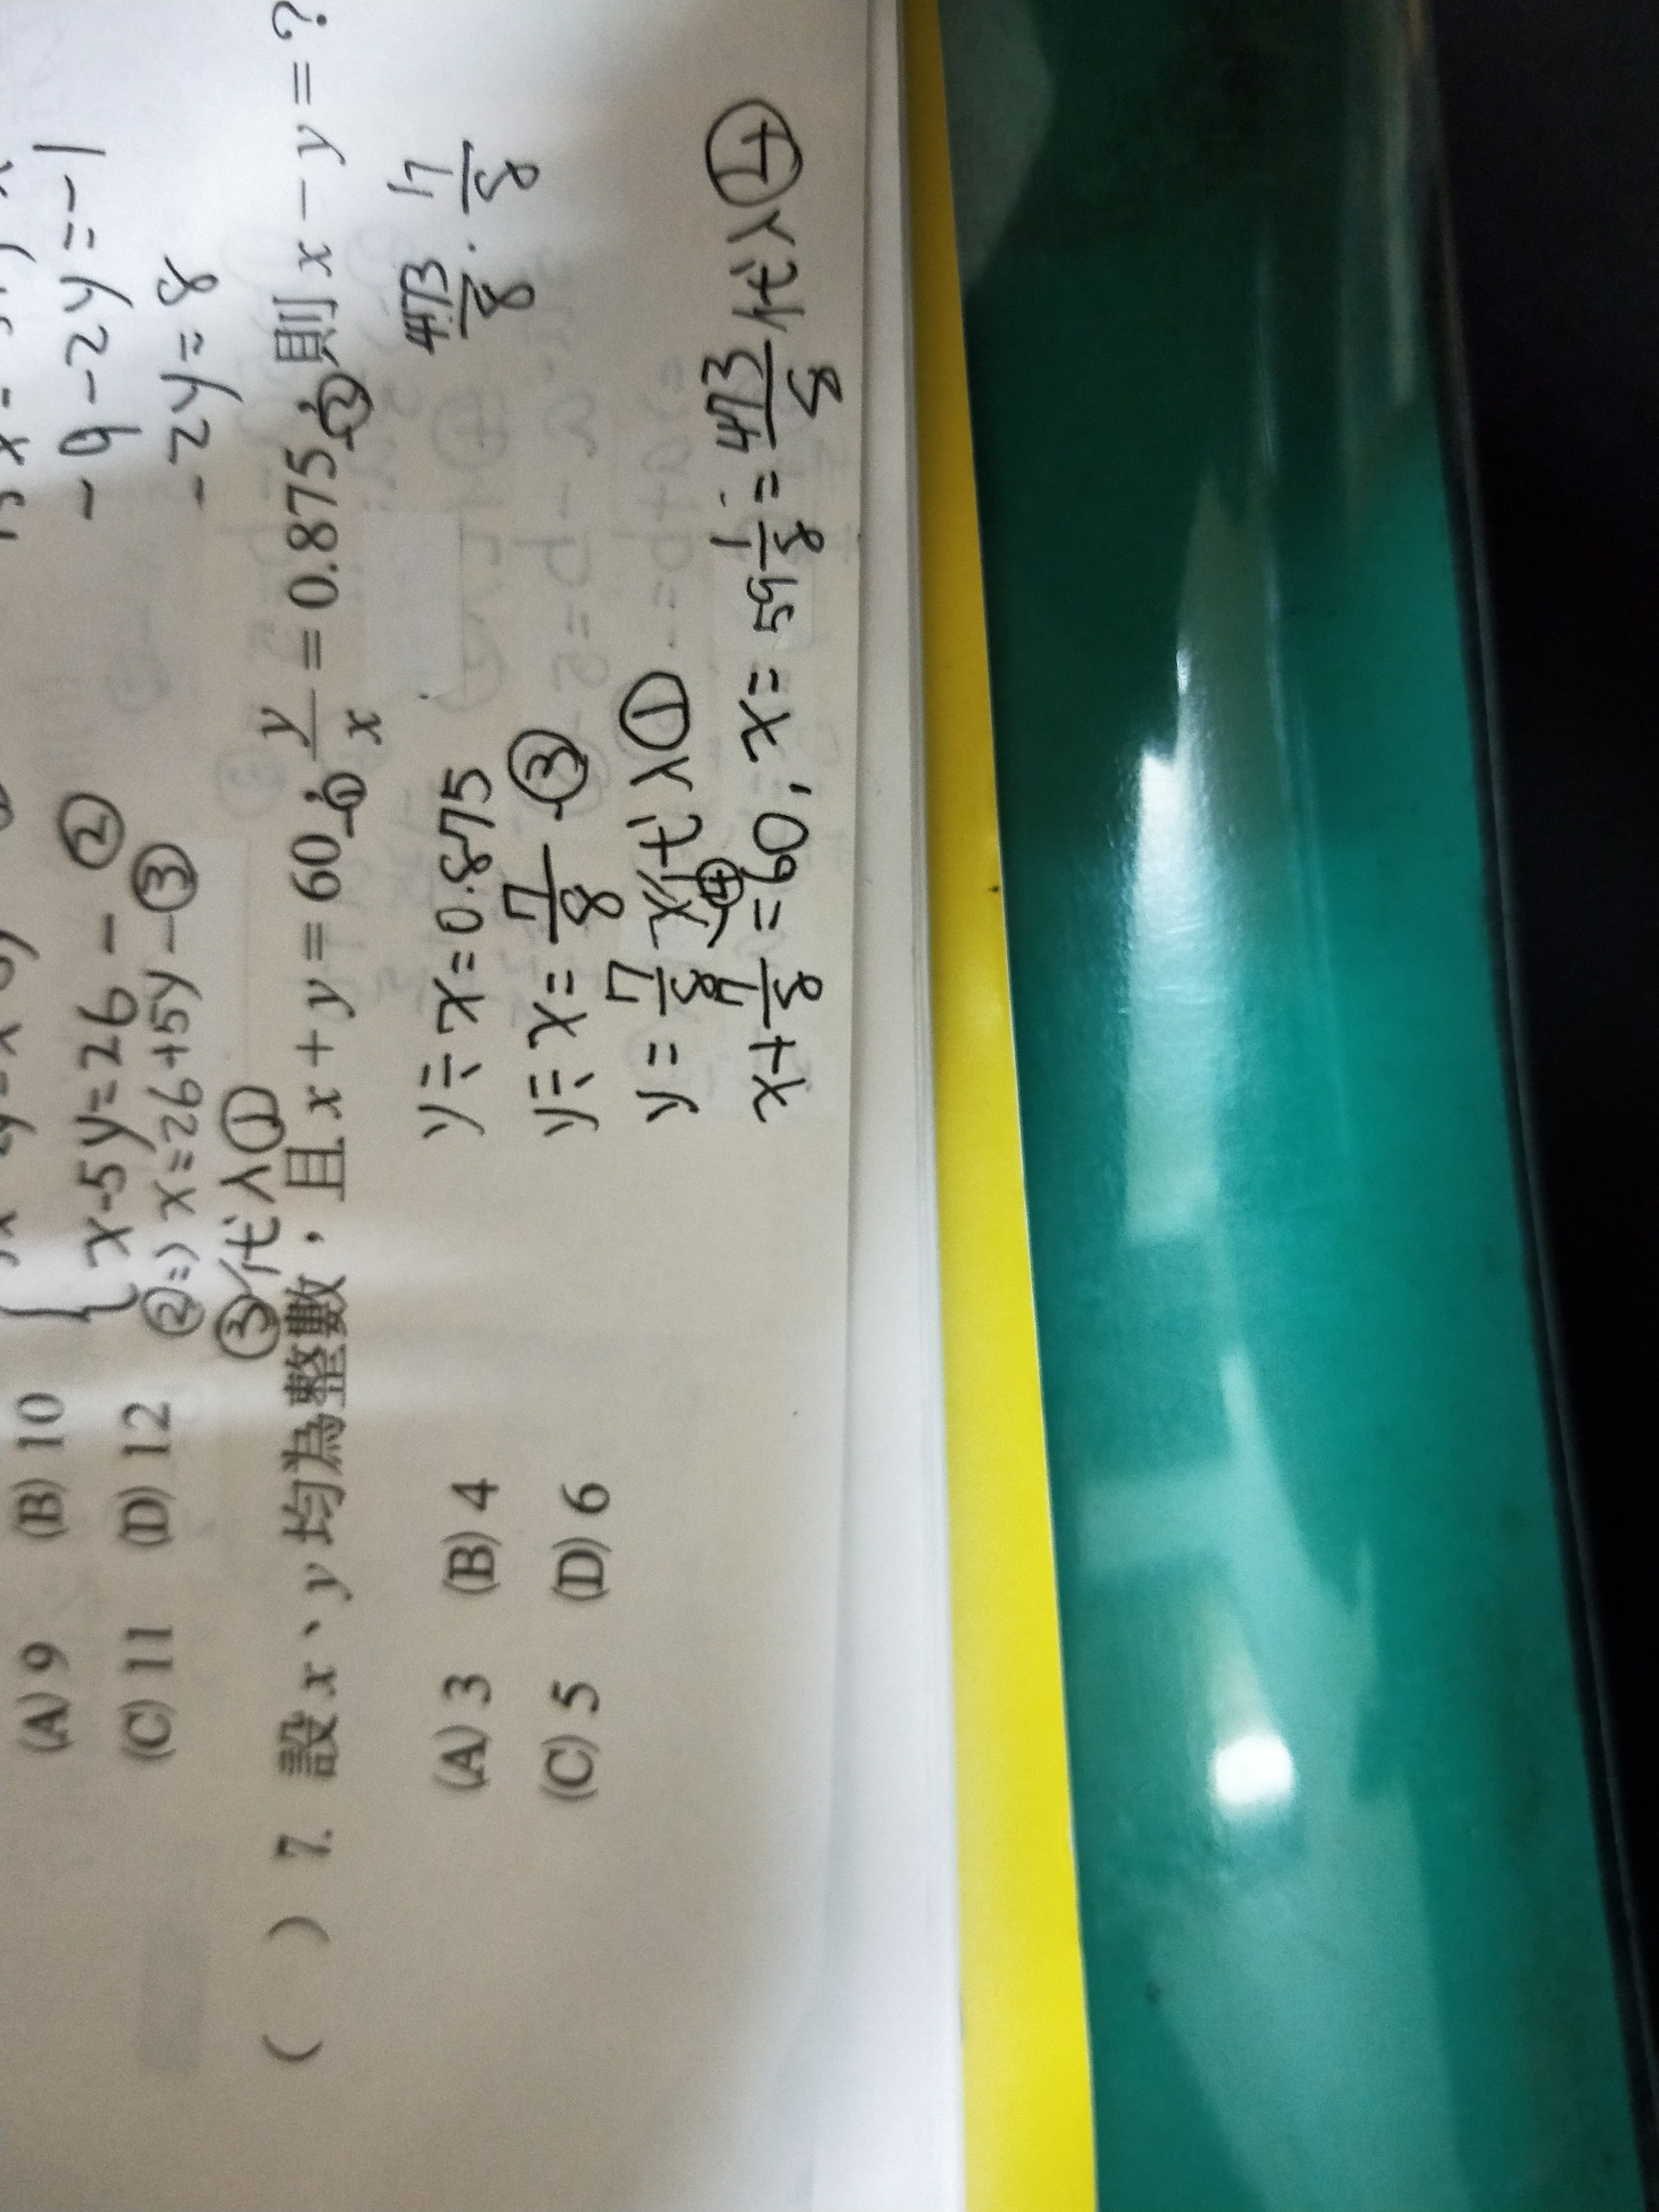 (A) 9 (B) 10
(C) 11 (D) 12
{ x-5y=26 -②
②=) x=26+5y -③
③代入①
-9-2y=-1
-2y=8
( ) 7. 設 x、y 均為整數,且 x + y = 60 -① , y/x = 0.875 -② , 則 x - y = ?
(A) 3 (B) 4
(C) 5 (D) 6
y÷x=0.875
y÷x=7/8 -③
y=7/8 x代入①
④
x+7/8=60, x=59 1/8=473/8代入④
473/8 · 7/8